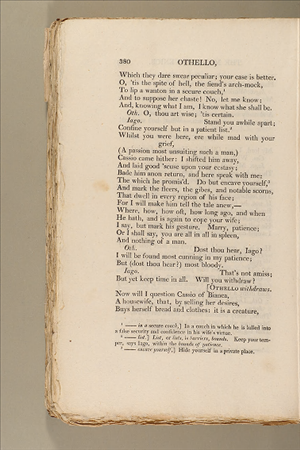 380 OTHELLO,
Which they dare swear peculiar; your case is better.
O, 'tis the spite of hell, the fiend's arch-mock,
To lip a wanton in a secure couch,³
And to suppose her chaste! No, let me know;
And, knowing what I am, I know what she shall be.
Oth. O, thou art wise; 'tis certain.
Iago. Stand you awhile apart;
Confine yourself but in a patient list.⁴
Whilst you were here, ere while mad with your
grief,
(A passion most unsuiting such a man,)
Cassio came hither: I shifted him away,
And laid good 'scuse upon your ecstasy;
Bade him anon return, and here speak with me;
The which he promis'd. Do but encave yourself,⁵
And mark the fleers, the gibes, and notable scorns,
That dwell in every region of his face;
For I will make him tell the tale anew,—
Where, how, how oft, how long ago, and when
He hath, and is again to cope your wife;
I say, but mark his gesture. Marry, patience;
Or I shall say, you are all in all in spleen,
And nothing of a man.
Oth. Dost thou hear, Iago?
I will be found most cunning in my patience;
But (dost thou hear?) most bloody.
Iago. That's not amiss;
But yet keep time in all. Will you withdraw?
[OTHELLO withdraws.
Now will I question Cassio of Bianca,
A housewife, that, by selling her desires,
Buys herself bread and clothes: it is a creature,
³ —— in a secure couch,] In a couch in which he is lulled into
a false security and confidence in his wife's virtue.
⁴ —— list.] List, or lists, is barriers, bounds. Keep your tem-
per, says Iago, within the bounds of patience.
⁵ —— encave yourself,] Hide yourself in a private place.